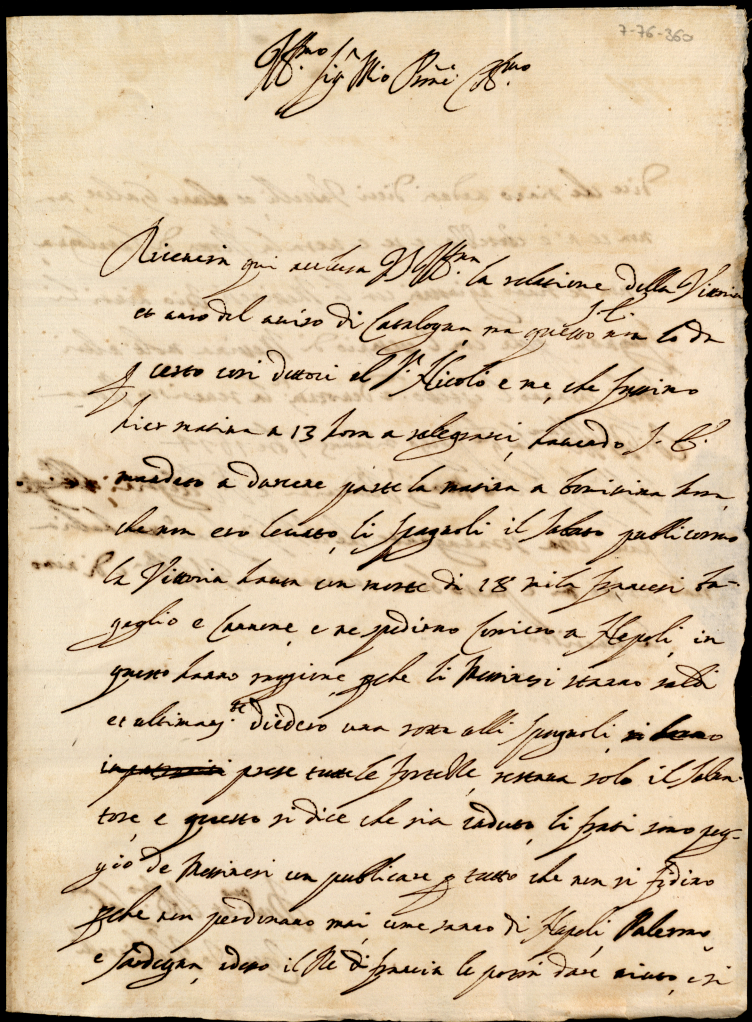 7-76-360
Ill.mo Sig.r Mio P.ne Col.mo
Riceverà qui acclusa V.S. Ill.ma la relatione della Vittoria
et anco del aviso di Catalogna, ma questo S. E. non lo da
p certo così dittoci el S.r Nicolò e me, che fussimo
hier matina a 13 hora a rallegrarci, havendo S. E.
mandato a darcene parte la matina a bonissima hora,
che non ero levato, li Spagnoli il Sabato publicorno
la Vittoria havuta con morte di 18 mila francesi ba-
gaglio e Cannone, e ne spedirno Corriero a Napoli, in
questo hanno raggione, perche li Messinesi stanno saldi
et ultimam.te diedero una rotta alli Spagnoli, si sono
impatroniti prese tutte le fortezze, restava solo il Salva-
tore, e questo si dice che sia caduto, li frati sono peg-
gio de Messinesi con publicare p tutto che non si fidino
perche non perdonano mai, come sanno di Napoli, Palermo
e Sardegna, adesso il Re di francia le potrà dare aiuto, e si